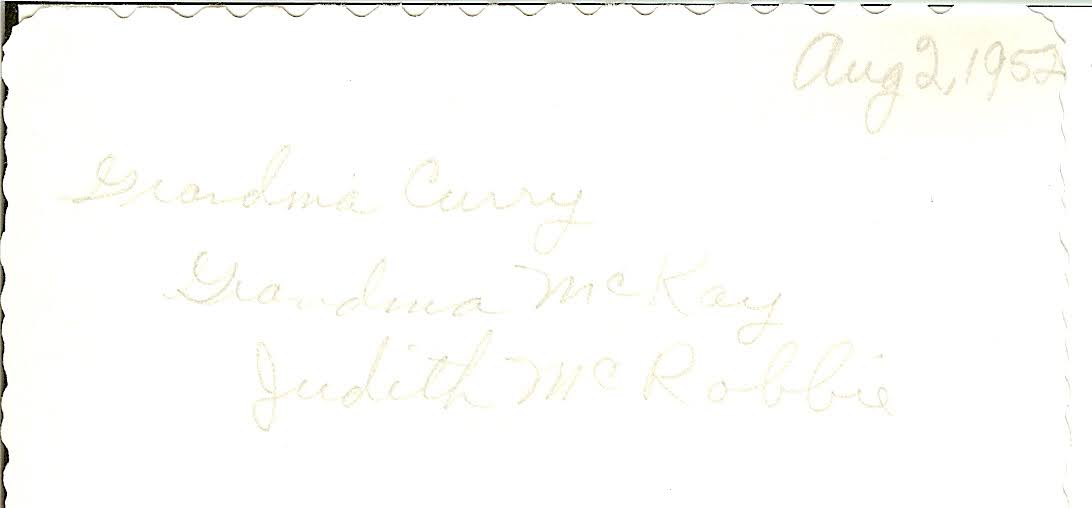 Aug 2, 1952
Grandma Curry
Grandma McKay
Judith McRobbie